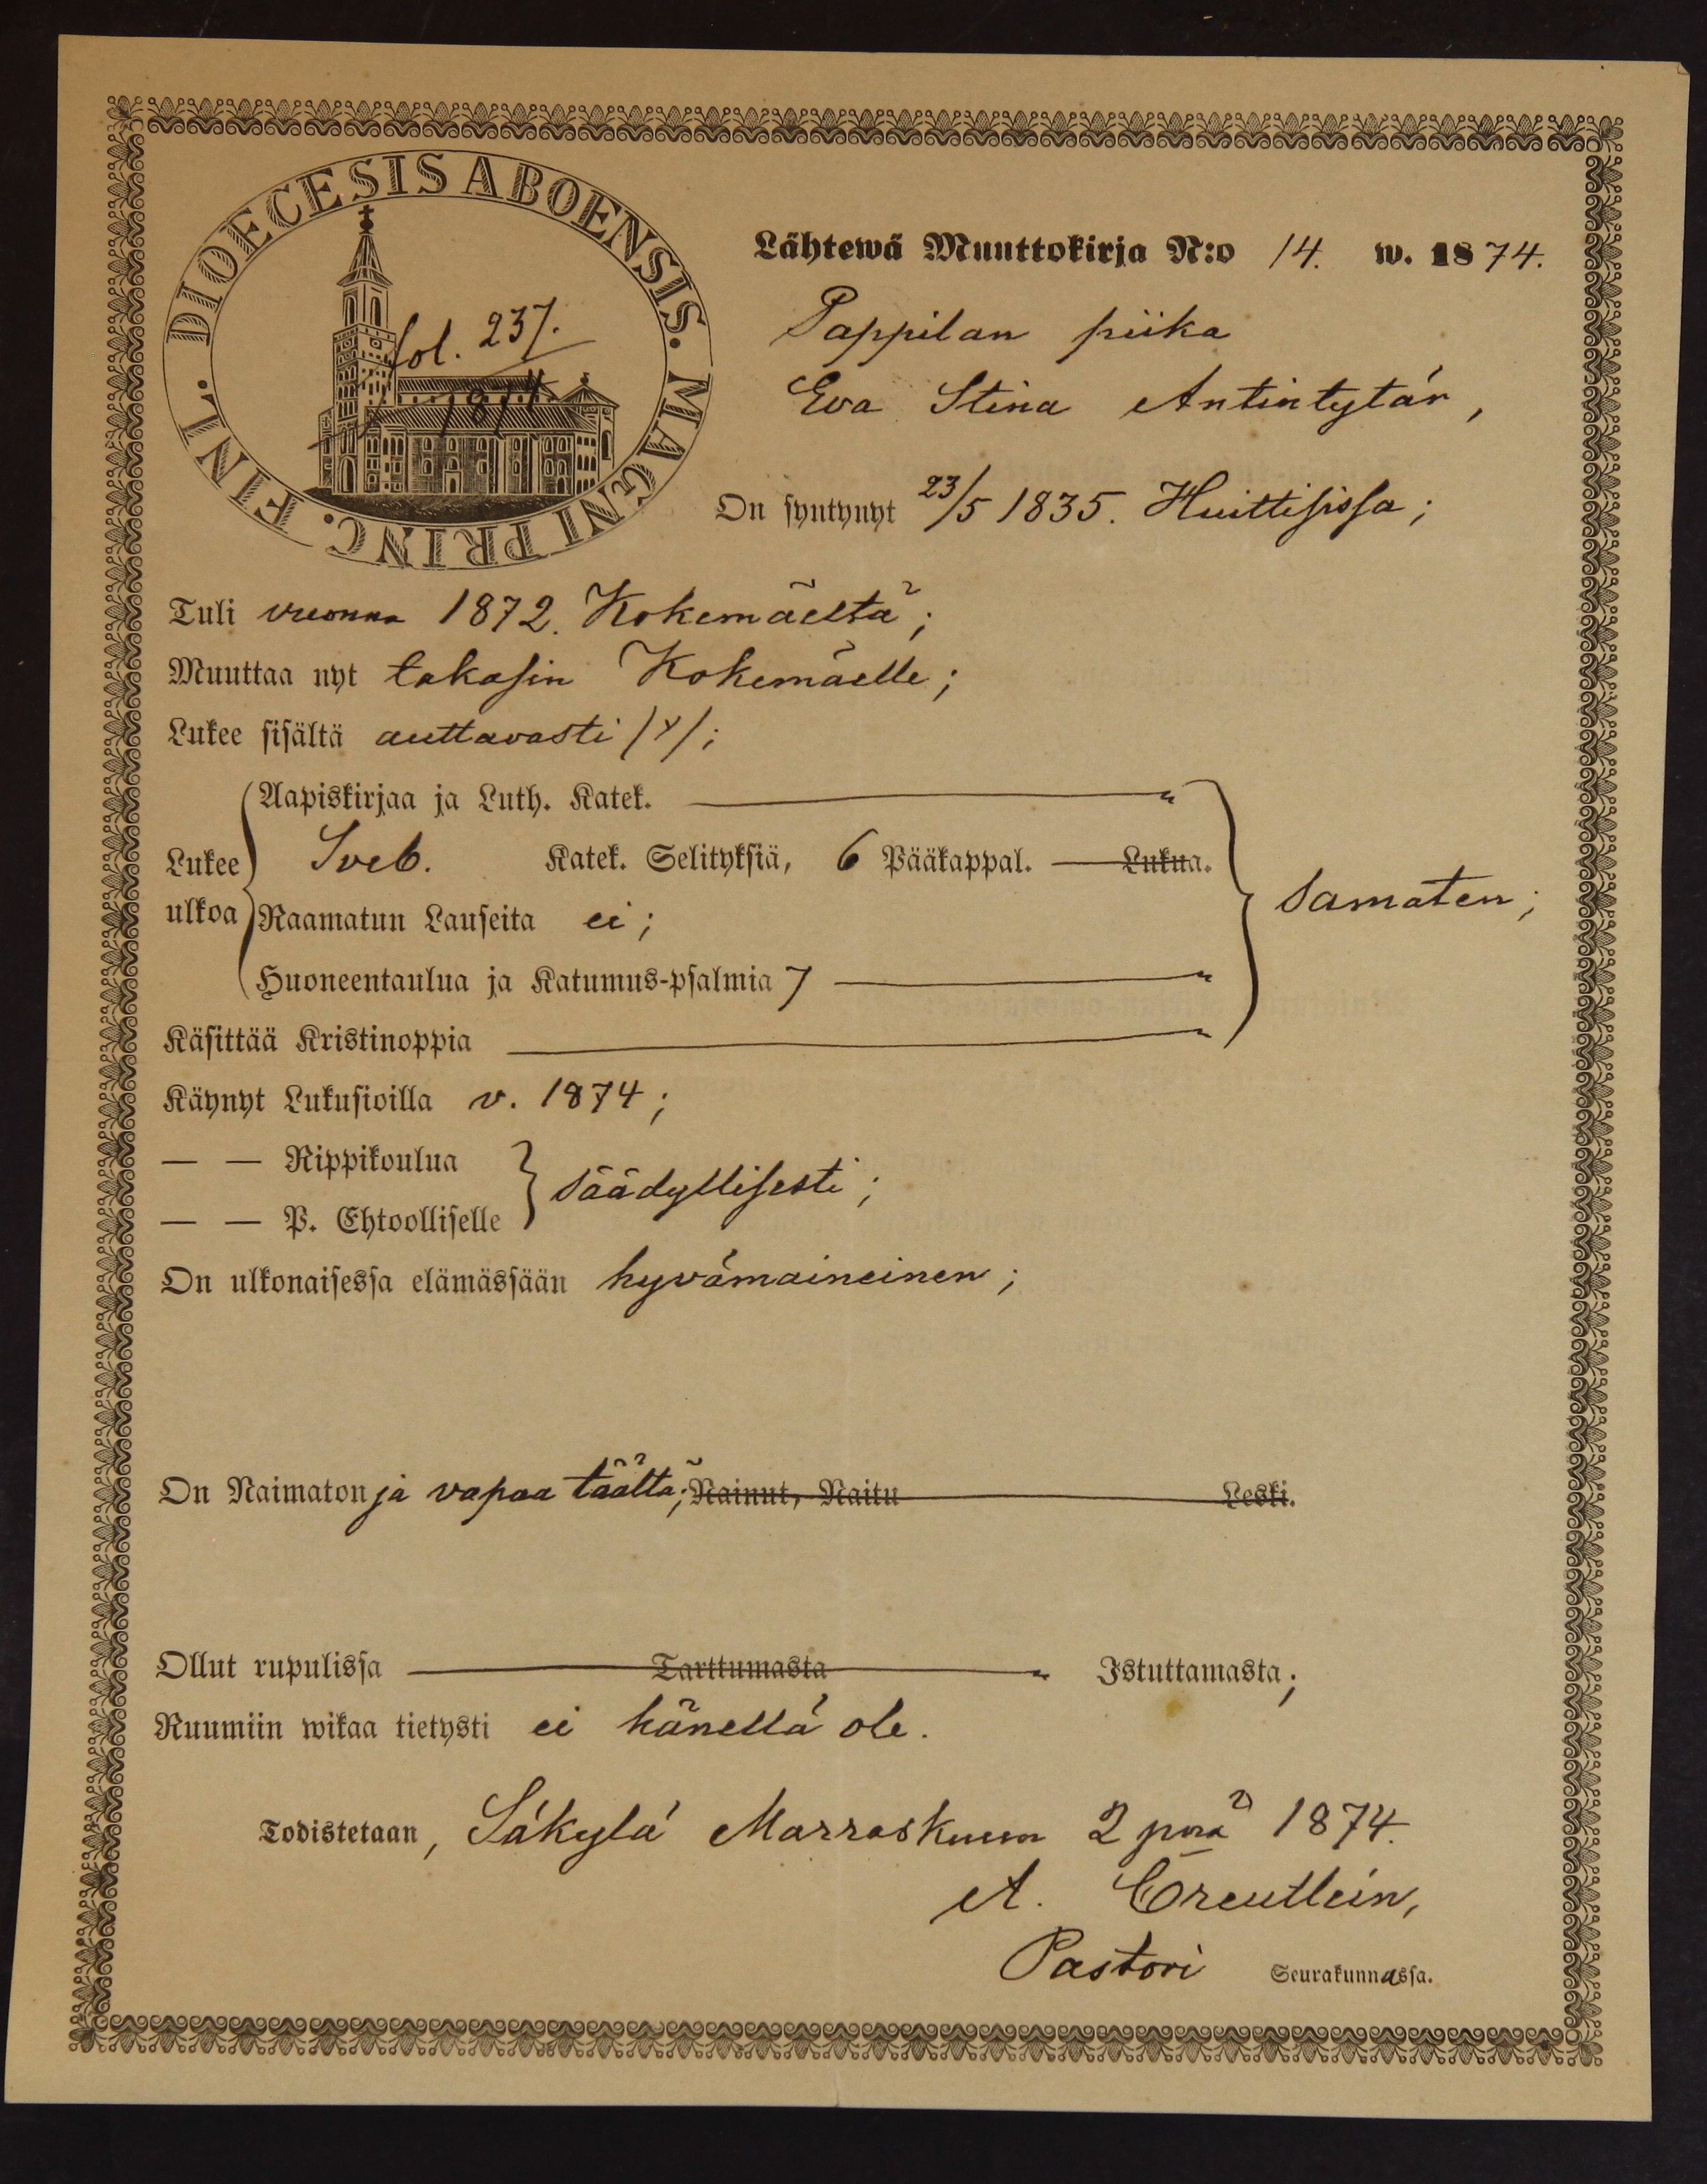 DIOECESIS ABOENSIS. MAGNI PRINC. FINL.
fol. 237.
1874
Lähtewä Muuttokirja N:o 14. w. 1874.
Pappilan piika
Eva Stina Antintytär,
On syntynyt 23/5 1835. Huittisissa;
Tuli vuonna 1872. Kokemäeltä;
Muuttaa nyt takasin Kokemäelle;
Lukee sisältä auttavasti /y/;
Aapiskirjaa ja Luth. Katek. — "
Lukee Sveb. Katek. Selityksiä, 6 Pääkappal. — Lukua.
samaten;
ulkoa Raamatun Lauseita ei;
Huoneentaulua ja Katumus-psalmia 7 — "
Käsittää Kristinoppia — "
Käynyt Lukusioilla v. 1874;
— — Rippikoulua
säädyllisesti;
— — P. Ehtoolliselle
On ulkonaisessa elämässään hyvämaineinen;
On Naimaton ja vapaa täältä; Nainut, Naitu Leski.
Ollut rupulissa — Tarttumasta — " Istuttamasta;
Ruumiin wikaa tietysti ei hänellä ole.
Todistetaan, Säkylä Marraskuun 2 pnä 1874.
A. Creutlein,
Pastori Seurakunnassa.